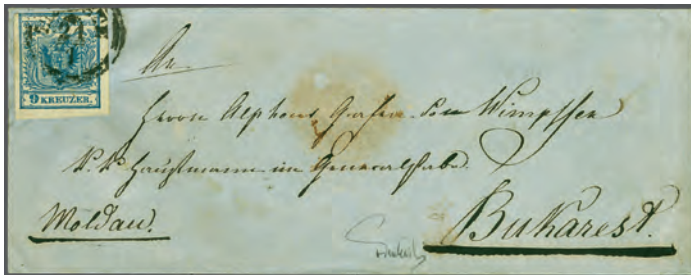 21
9 KREUZER.
An
Herrn Alphons Grafen von Wimpffen
K. K. Hauptmann im Generalstabe.
Moldau.
Bukarest.